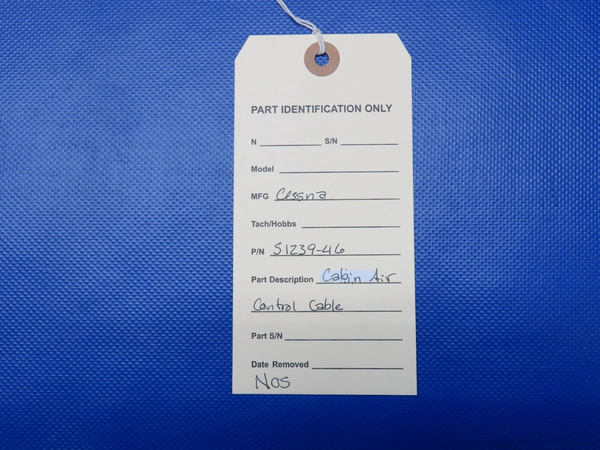 PART IDENTIFICATION ONLY
N S/N
Model
MFG Cessna
Tach/Hobbs
P/N S1239-46
Part Description Cabin Air
Control Cable
Part S/N
Date Removed
NOS